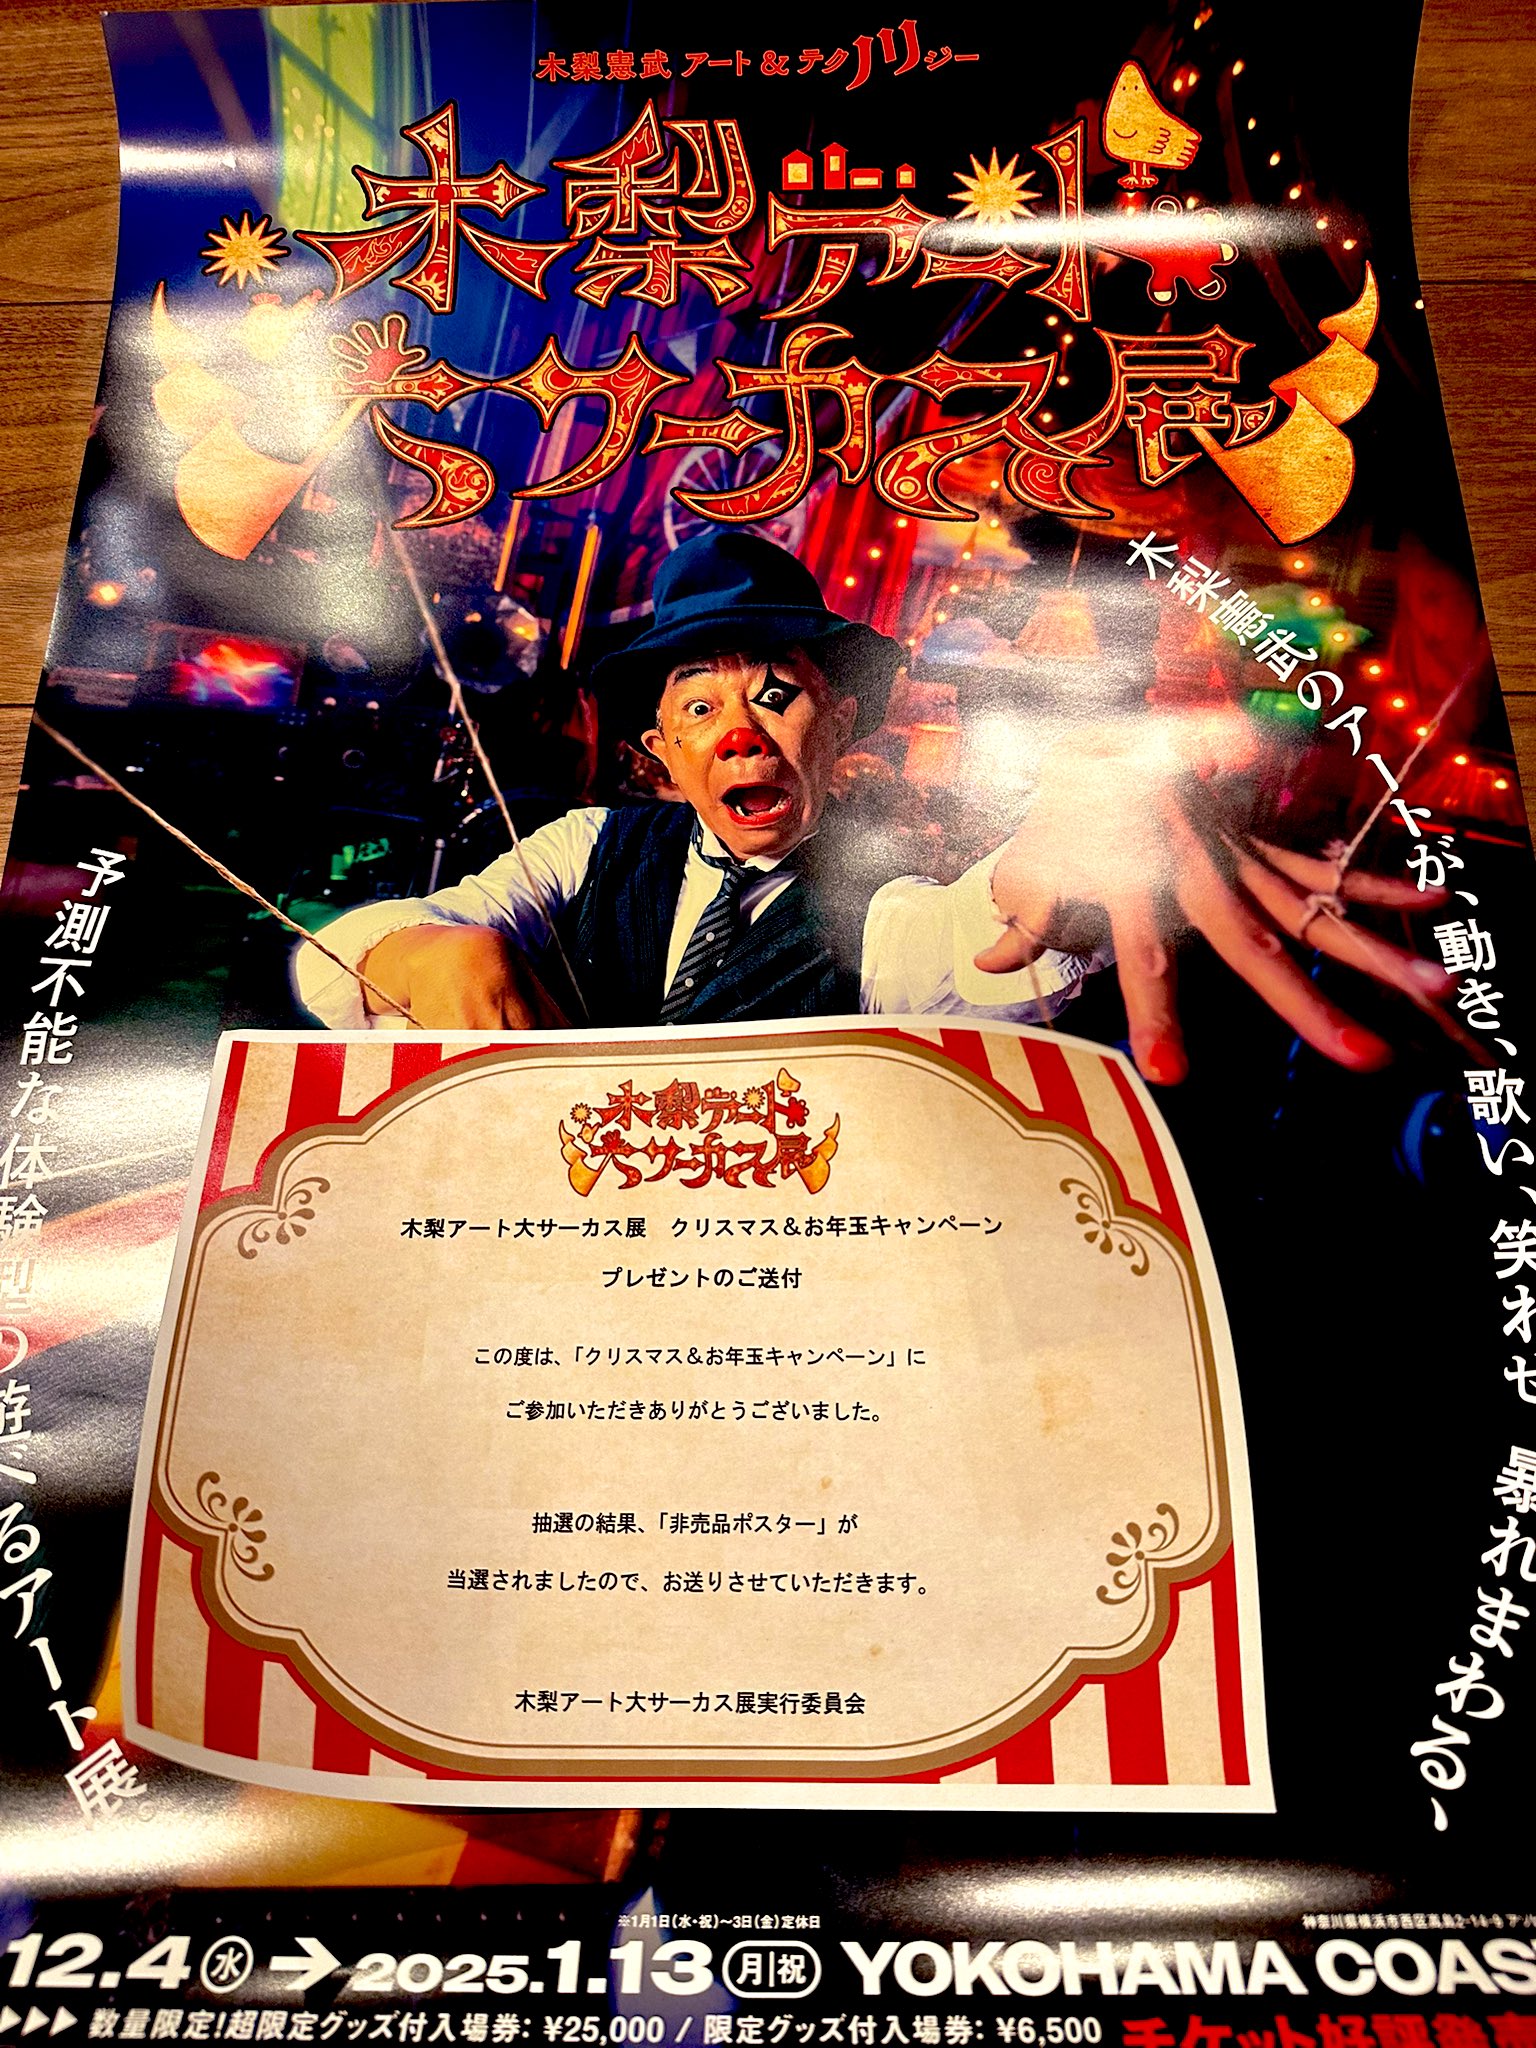 木梨憲武 アート&テクノリジー
木梨アート
大サーカス展
木梨憲武のアートが、動き、歌い、笑わせ 暴れまわる、
予測不能な体験型の遊べるアート展。
木梨アート
大サーカス展
木梨アート大サーカス展 クリスマス&お年玉キャンペーン
プレゼントのご送付
この度は、「クリスマス&お年玉キャンペーン」に
ご参加いただきありがとうございました。
抽選の結果、「非売品ポスター」が
当選されましたので、お送りさせていただきます。
木梨アート大サーカス展実行委員会
※1月1日(水・祝)~3日(金)定休日
神奈川県横浜市西区高島2-14-9
12.4(水)→2025.1.13(月|祝) YOKOHAMA COAS
▶▶▶ 数量限定!超限定グッズ付入場券: ¥25,000 / 限定グッズ付入場券: ¥6,500
チケット好評発売